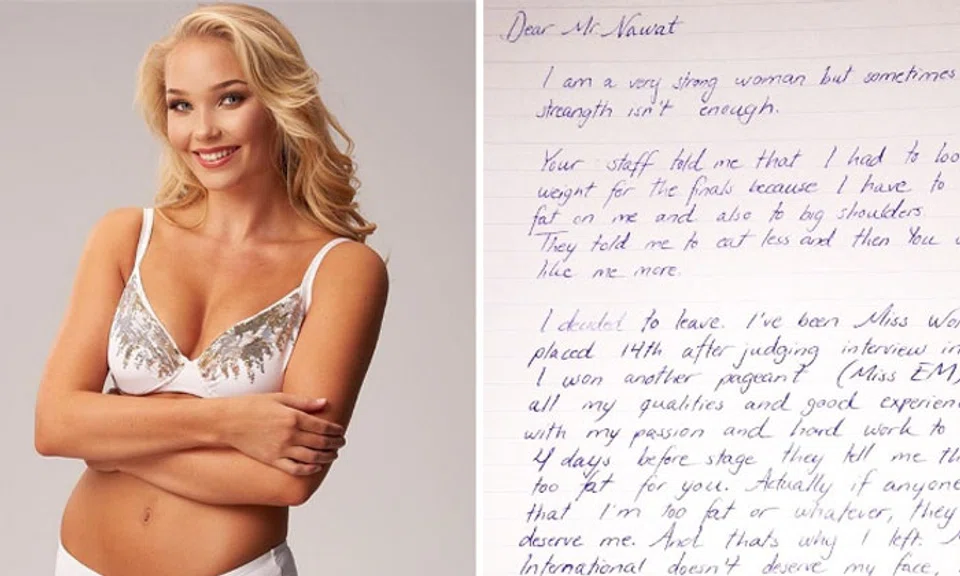 Dear Mr Nawat
I am a very strong woman but sometimes
streangth isn't enough.
Your staff told me that I had to loo
weight for the finals because I have to
fat on me and also to big shoulders.
They told me to eat less and then You
like me more.
I decided to leave. I've been Miss Wor
placed 14th after judging interview in
I won another pageant (Miss EM)
all my qualities and good experien
with my passion and hard work to
4 days before stage they tell me th
too fat for you. Actually if anyone
that I'm too fat or whatever, they
deserve me. And thats why I left.
International doesn't deserve my face,